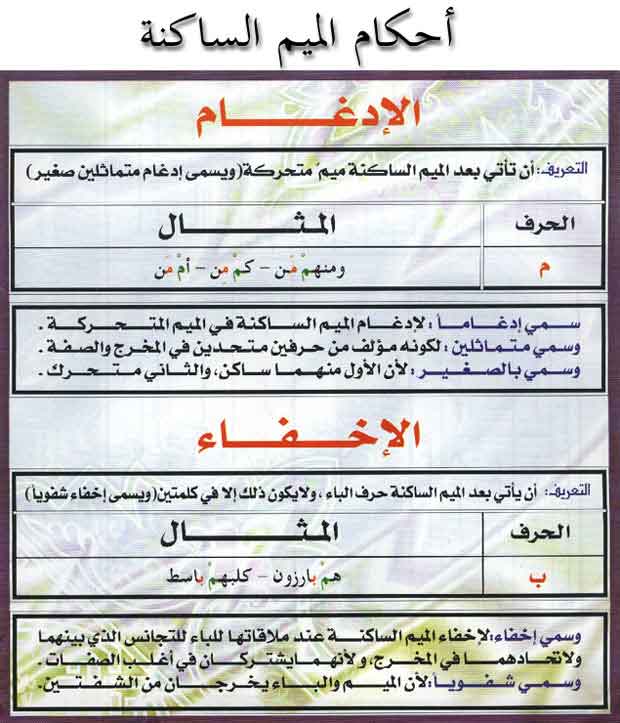 أحكام الميم الساكنة
الإدغـــــام
التعريف: أن تأتي بعد الميم الساكنة ميم متحركة (ويسمى إدغام متماثلين صغير)
الحرف المثـــــال
م ومنهمْ مَن - كمْ مِن - أمْ مَن
سمي إدغاماً: لإدغام الميم الساكنة في الميم المتحركة.
وسمي متماثلين: لكونه مؤلف من حرفين متحدين في المخرج والصفة.
وسمي بالصغير: لأن الأول منهما ساكن، والثاني متحرك.
الإخـفـــاء
التعريف: أن يأتي بعد الميم الساكنة حرف الباء، ولا يكون ذلك إلا في كلمتين (ويسمى إخفاء شفوياً)
الحرف المثـــــال
ب همْ بارزون - كلبهمْ باسط
وسمي إخفاء: لإخفاء الميم الساكنة عند ملاقاتها للباء للتجانس الذي بينهما
ولاتحادهما في المخرج، ولأنهما يشتركان في أغلب الصفات.
وسمي شفوياً: لأن الميم والباء يخرجان من الشفتين.